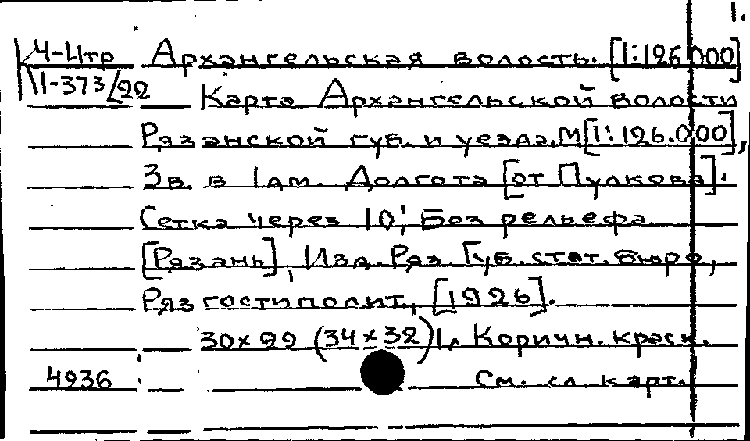 1.
Ч-Цтр Архангельская волость. [1:126.000]
11-373/22 Карта Архангельской волости
Рязанской губ. и уезда, М[1:126.000],
3 в. в 1 дм. Долгота [от Пулкова].
Сетка через 10', Без рельефа
[Рязань], Изд. Ряз. Губ. стат. бюро,
Ряз гостиполит, [1926].
30×29 (34×32) 1 л Коричн. краск.
4936 См. сл. карт.